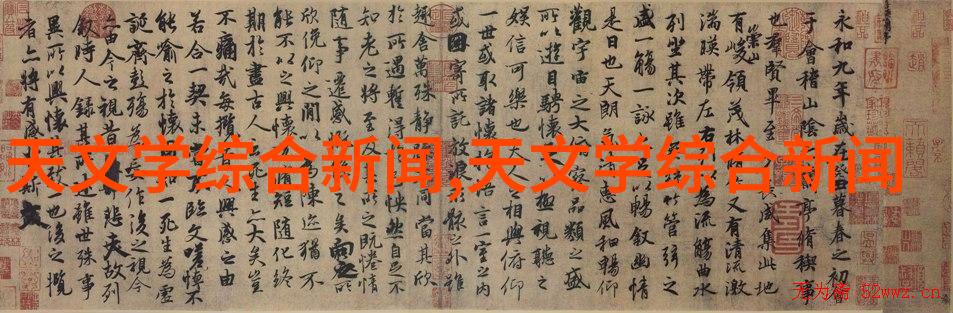 永和九年歲在癸丑暮春之初會
于會稽山陰亭脩稧事
也羣賢畢至咸集此地
有崇山峻領茂林又有清流激
湍暎帶左右以為流觴曲水
列坐其次雖竹管弦之
盛一觴一詠以暢敘幽情
是日也天朗惠風和暢仰
觀宇宙之大品類之盛
所以遊目騁懷極視聽之
娛信可樂也夫人相與俯仰
一世或取諸懷悟言一室之內
或因寄所託放浪骸之外雖
趣舍萬殊靜同當其欣
於所遇蹔得怏然自足不
知老之將至及之既惓情
隨事遷感之矣向之所
欣俛仰之間以為陳跡猶不
能不以之興懷脩短隨化終
期於盡古人死生亦大矣豈
不痛哉每攬興感之由
若合一契未臨文嗟悼不
能喻之於懷一死生為虛
誕齊彭殤為妄作後之視今
亦由今之視昔悲夫故列
敘時人錄其述雖世殊事
異所以興懷其致一也後之攬
者亦將有感斯文
天文学综合新闻,天文学综合新闻
无为斋 52wwz.cn